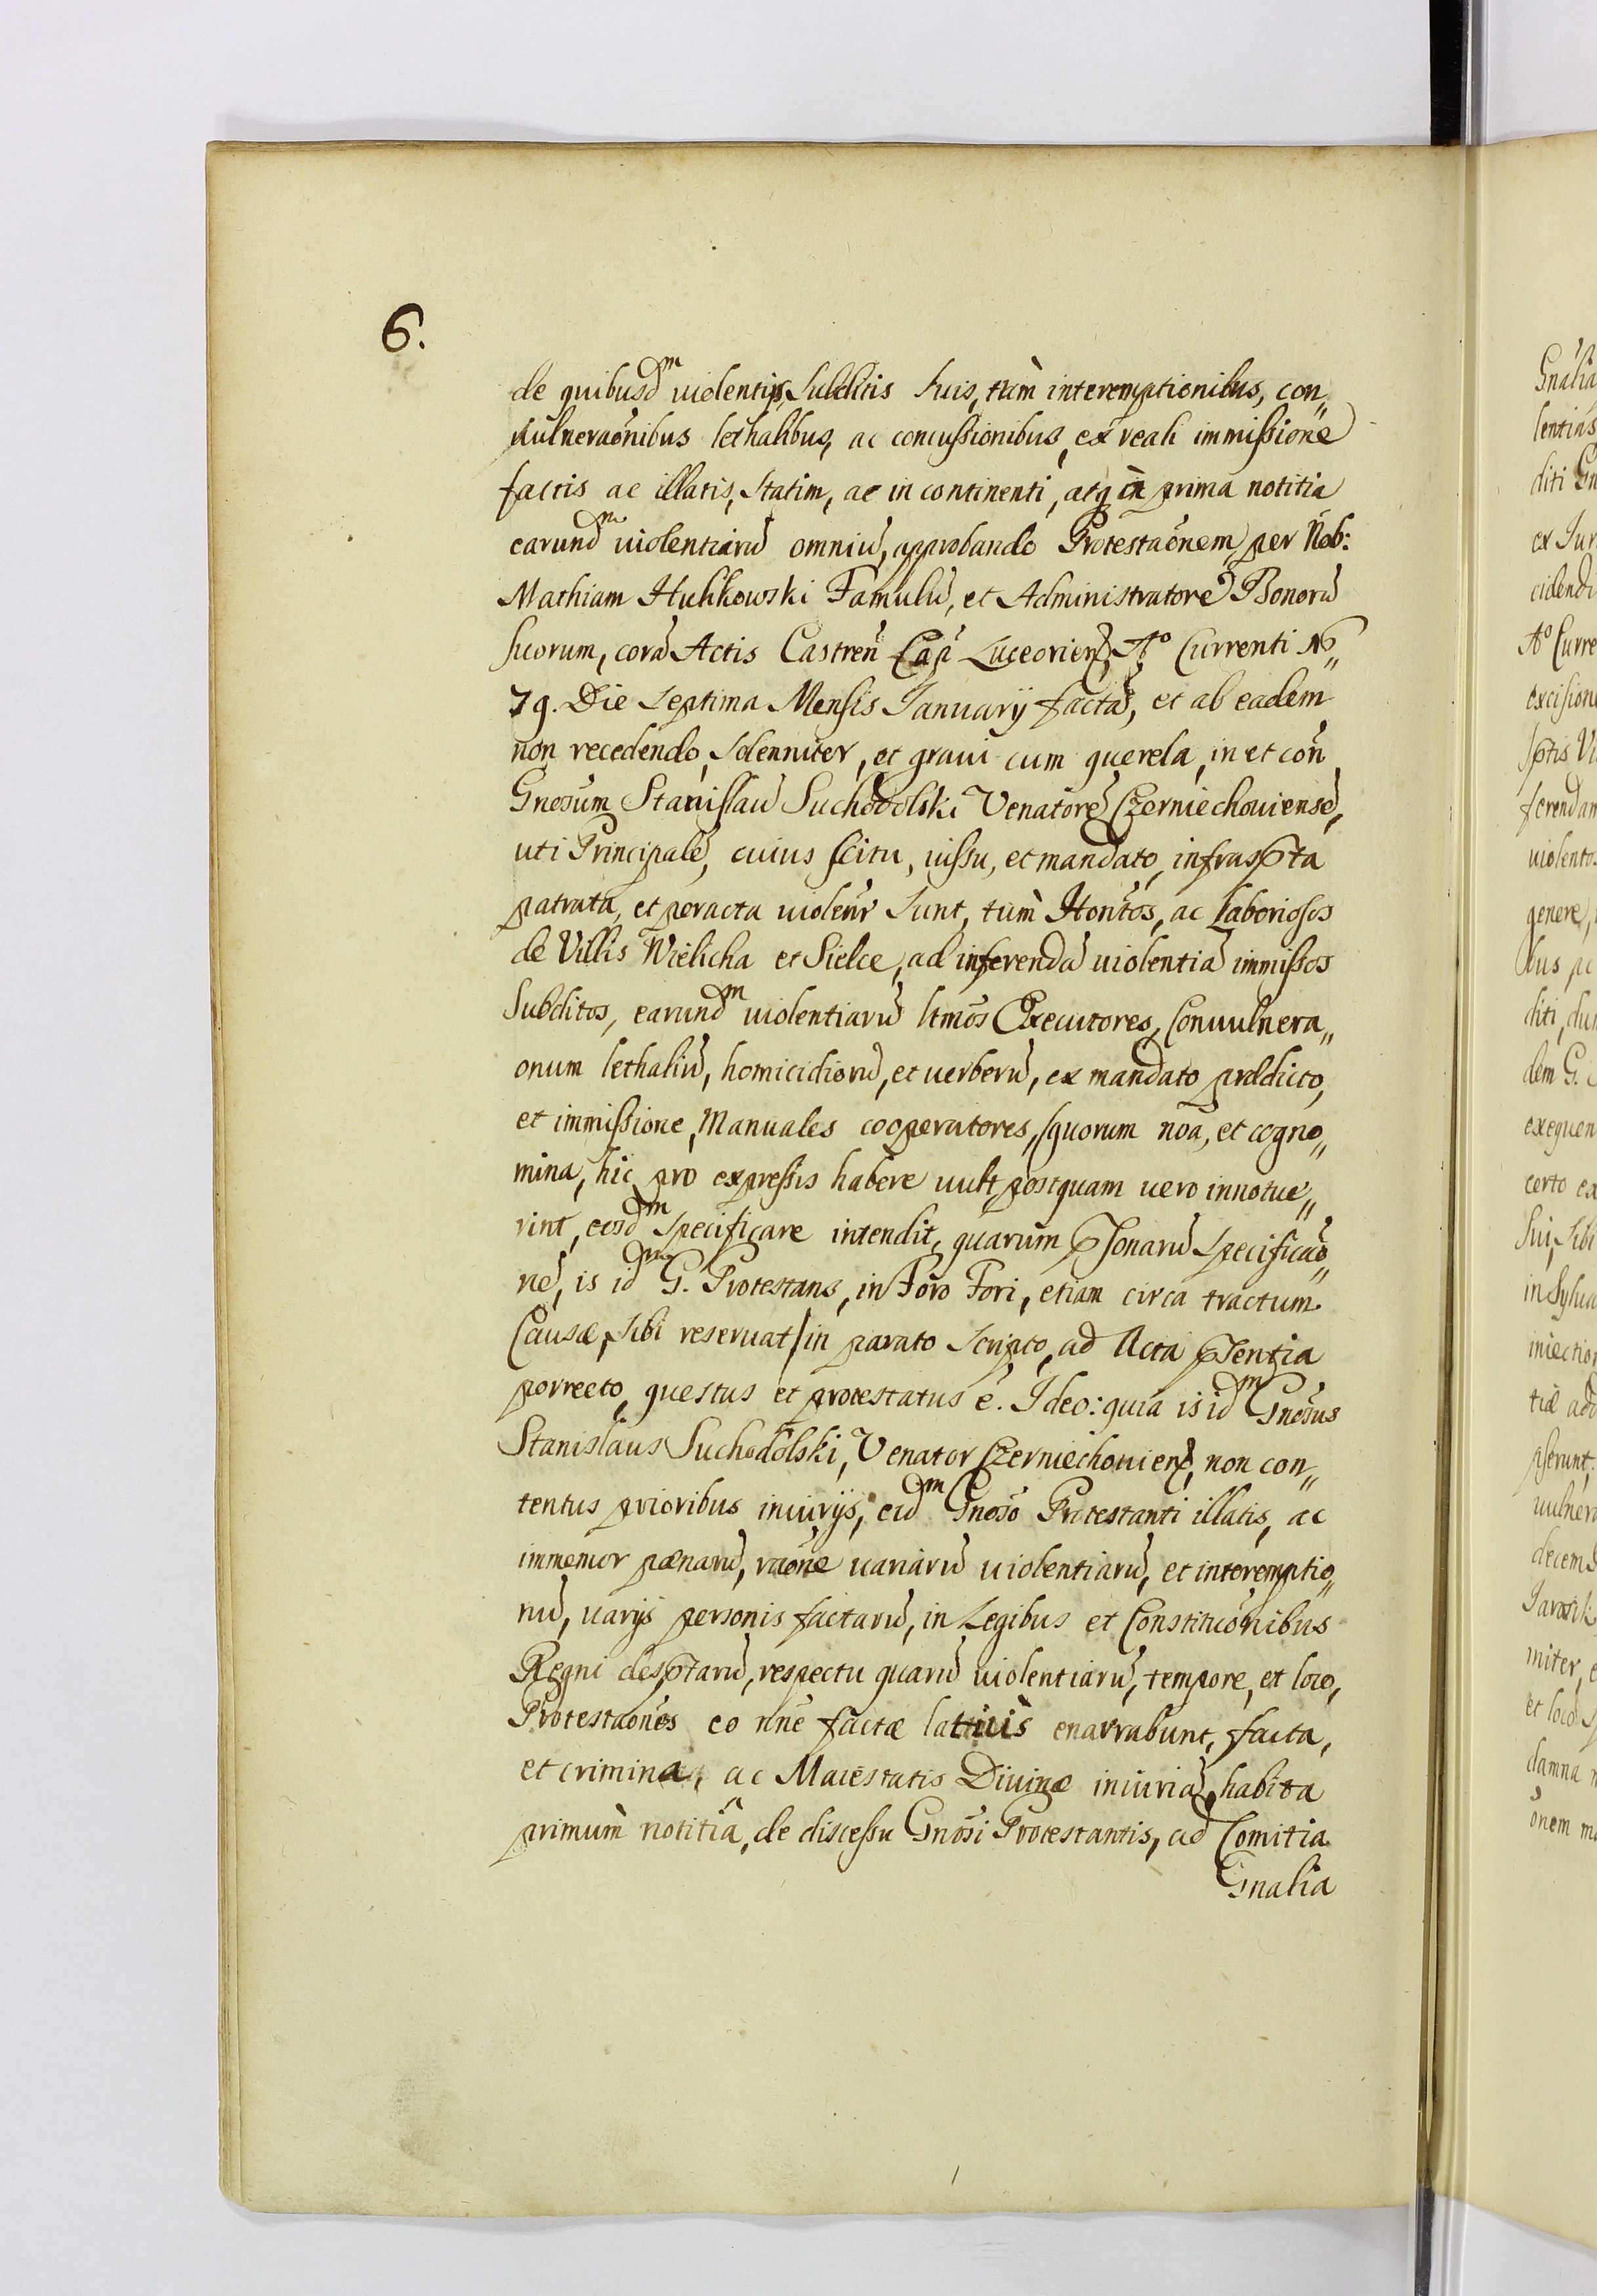 6.
de quibusdm violentijs, Subditis Suis, tùm interemptionibus, con„
vulneraõnibus lethalibus, ac concussionibus, ex reali immissione
factis ac illatis, Statim, ac in continenti, atq̃ in prima notitia
earundm violentiarũ omniũ, approbando Protestaõnem per Nob:
Mathiam Hulikowski Famulũ, et Administratorẽ Bonorũ
Suorum, corã Actis Castreñ Cap̃ Luceorieñ, Aº Currenti 16„
79. Die Septima Mensis Januarij factã, et ab eadem
non recedendo, Solenniter, et graui cum querela, in et coñ
Gnõsum Stanislaũ Suchodolski Venatorẽ Czerniechouiensẽ,
uti Principalẽ, cuius scitu, iussu, et mandato, infrasp̃ta
patrata, et peracta violeñr Sunt, tùm Hont̃os, ac Laboriosos
de Villis Wielicha et Sielce, ad inferendã violentiã immissos
Subditos, earundm violentiarũ ltmõs Executores, Conuulnera„
onum lethaliũ, homicidiorũ, et verberũ, ex mandato prædicto,
et immissione, Manuales cooperatores, /quorum nõa, et cogno„
mina, hic pro expressis habere vult, postquam vero innotue„
rint, eosdm Specificare intendit, quarum p̃sonarũ Specificaõ„
nẽ, is idm G. Protestans, in Foro Fori, etiam circa tractum
Causæ, Sibi reseruat/ in parato Scripto, ad Acta p̃sentia
porrecto, questus et protestatus ẽ. Ideo: quia is idm Gnõsus
Stanislaus Suchodolski, Venator Czerniechouieñ, non con„
tentus prioribus iniurijs, eidm Gnõso Protestanti illatis, ac
immemor pœnarũ, raõne variarũ violentiarũ, et interemptio„
nũ, varijs personis factarũ, in Legibus et Constituõnibus
Regni desp̃tarũ, respectu quarũ violentiarũ, tempore, et loco,
Protestaõnes eo nñe factæ latiùs enarrabunt, facta,
et crimina, ac Maiestatis Diuinæ iniuriã, habita
primùm notitiâ, de discessu Gnõsi Protestantis, ad Comitia
Gnalia